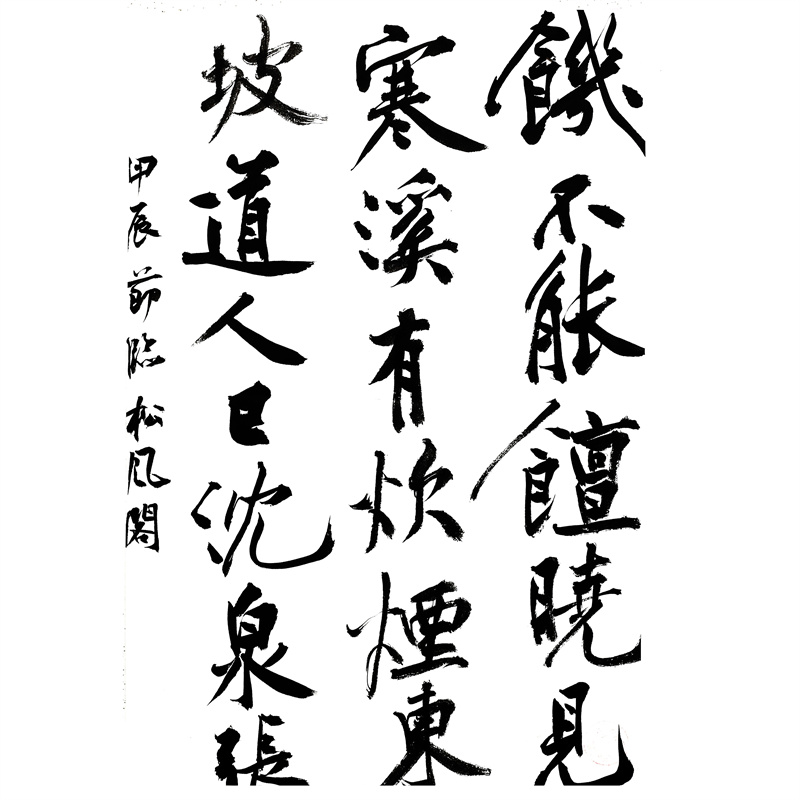 饑不能饘曉見
寒溪有炊煙東
坡道人已沈泉張
甲辰節臨松風閣